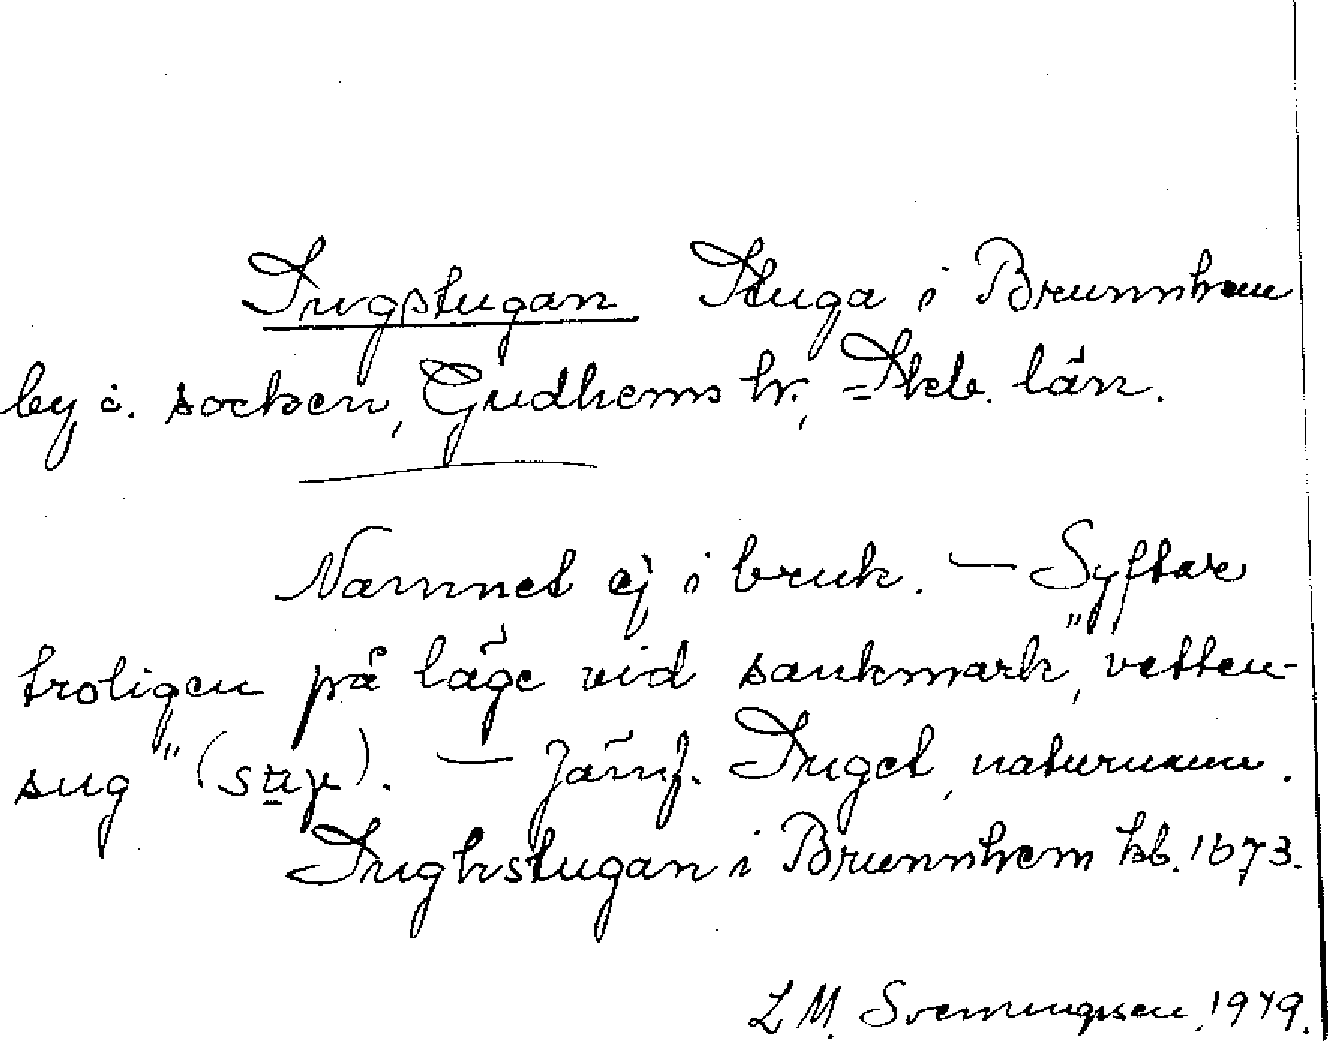 Sugstugan Stuga i Brunnhem
by o. socken, Gudhems hr, Skb. län.
Namnet ej i bruk. — Syftar
troligen på läge vid sankmark, "vatten-
sug" (). — Jämf. Suget, naturnamn.
Sughstugan i Brunnhem kb. 1673.
L M. Svenungsson, 1949.